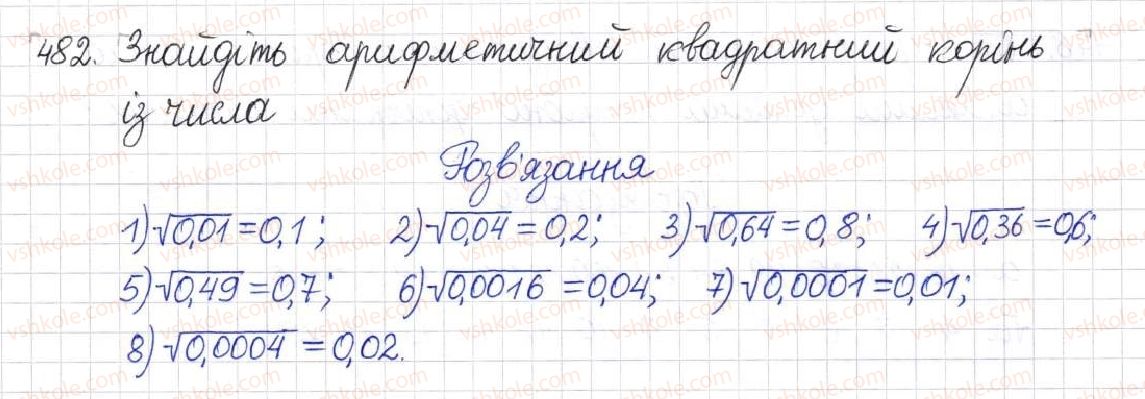 482. Знайдіть арифметичний квадратний корінь
із числа
Розв'язання
1) √0,01 = 0,1; 2) √0,04 = 0,2; 3) √0,64 = 0,8; 4) √0,36 = 0,6;
5) √0,49 = 0,7; 6) √0,0016 = 0,04; 7) √0,0001 = 0,01;
8) √0,0004 = 0,02.